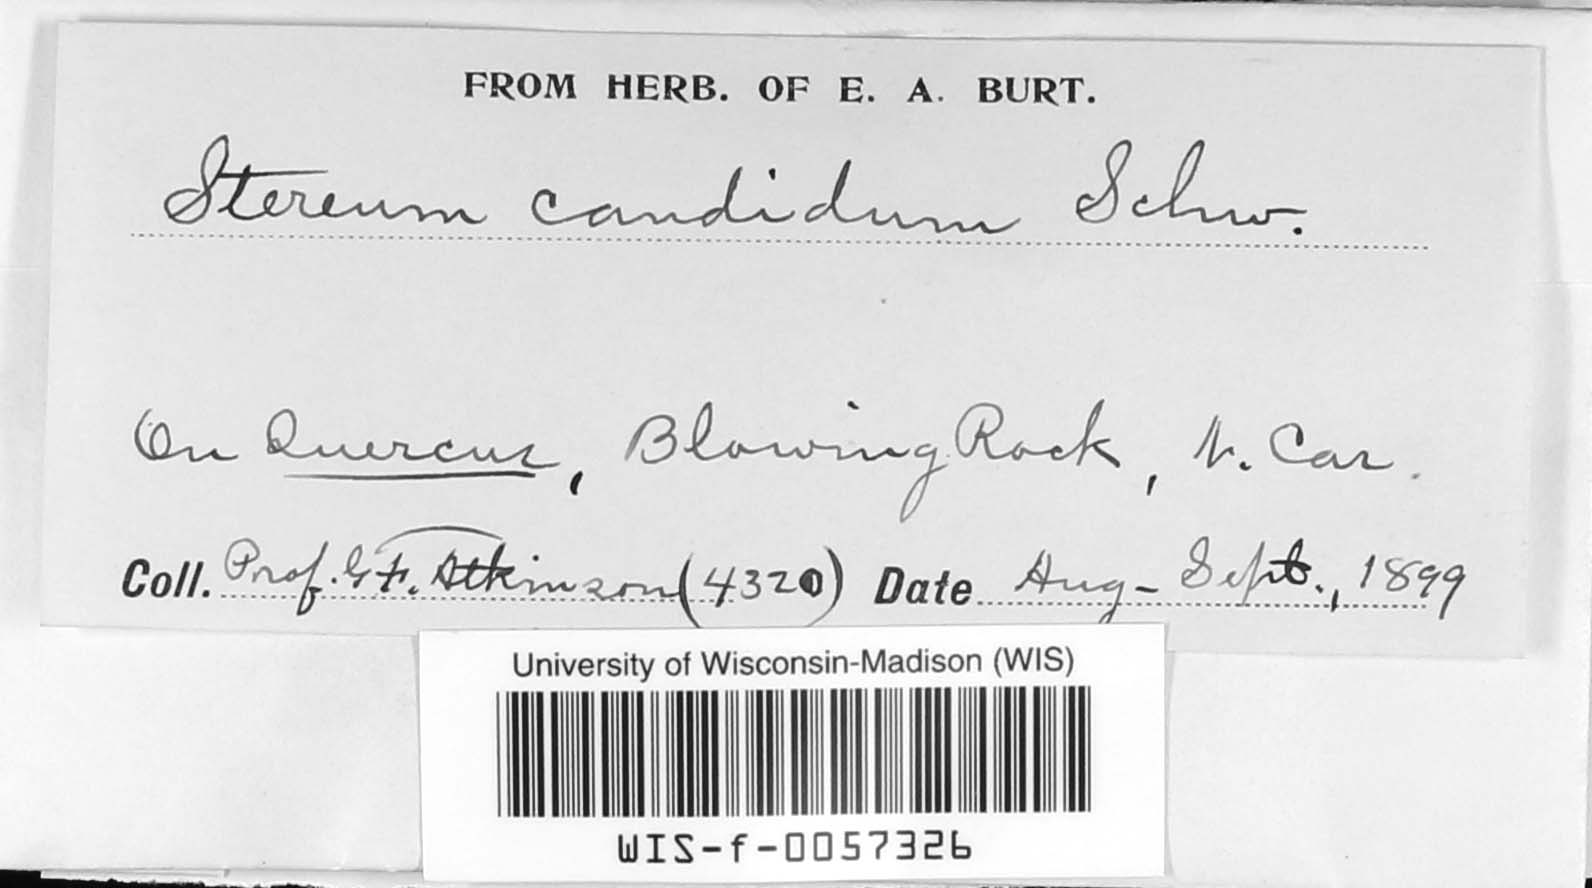 FROM HERB. OF E. A. BURT.
Stereum candidum Schw.
On Quercus, Blowing Rock, N. Car.
Coll. Prof. G. F. Atkinson (4320) Date Aug - Sept., 1899
University of Wisconsin-Madison (WIS)
WIS-f-0057326